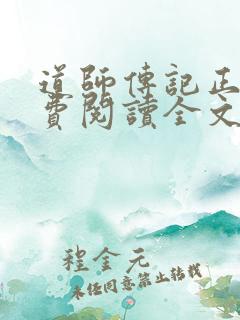 道師傳記正
費閱讀全文
程金元
未經同意禁止轉載